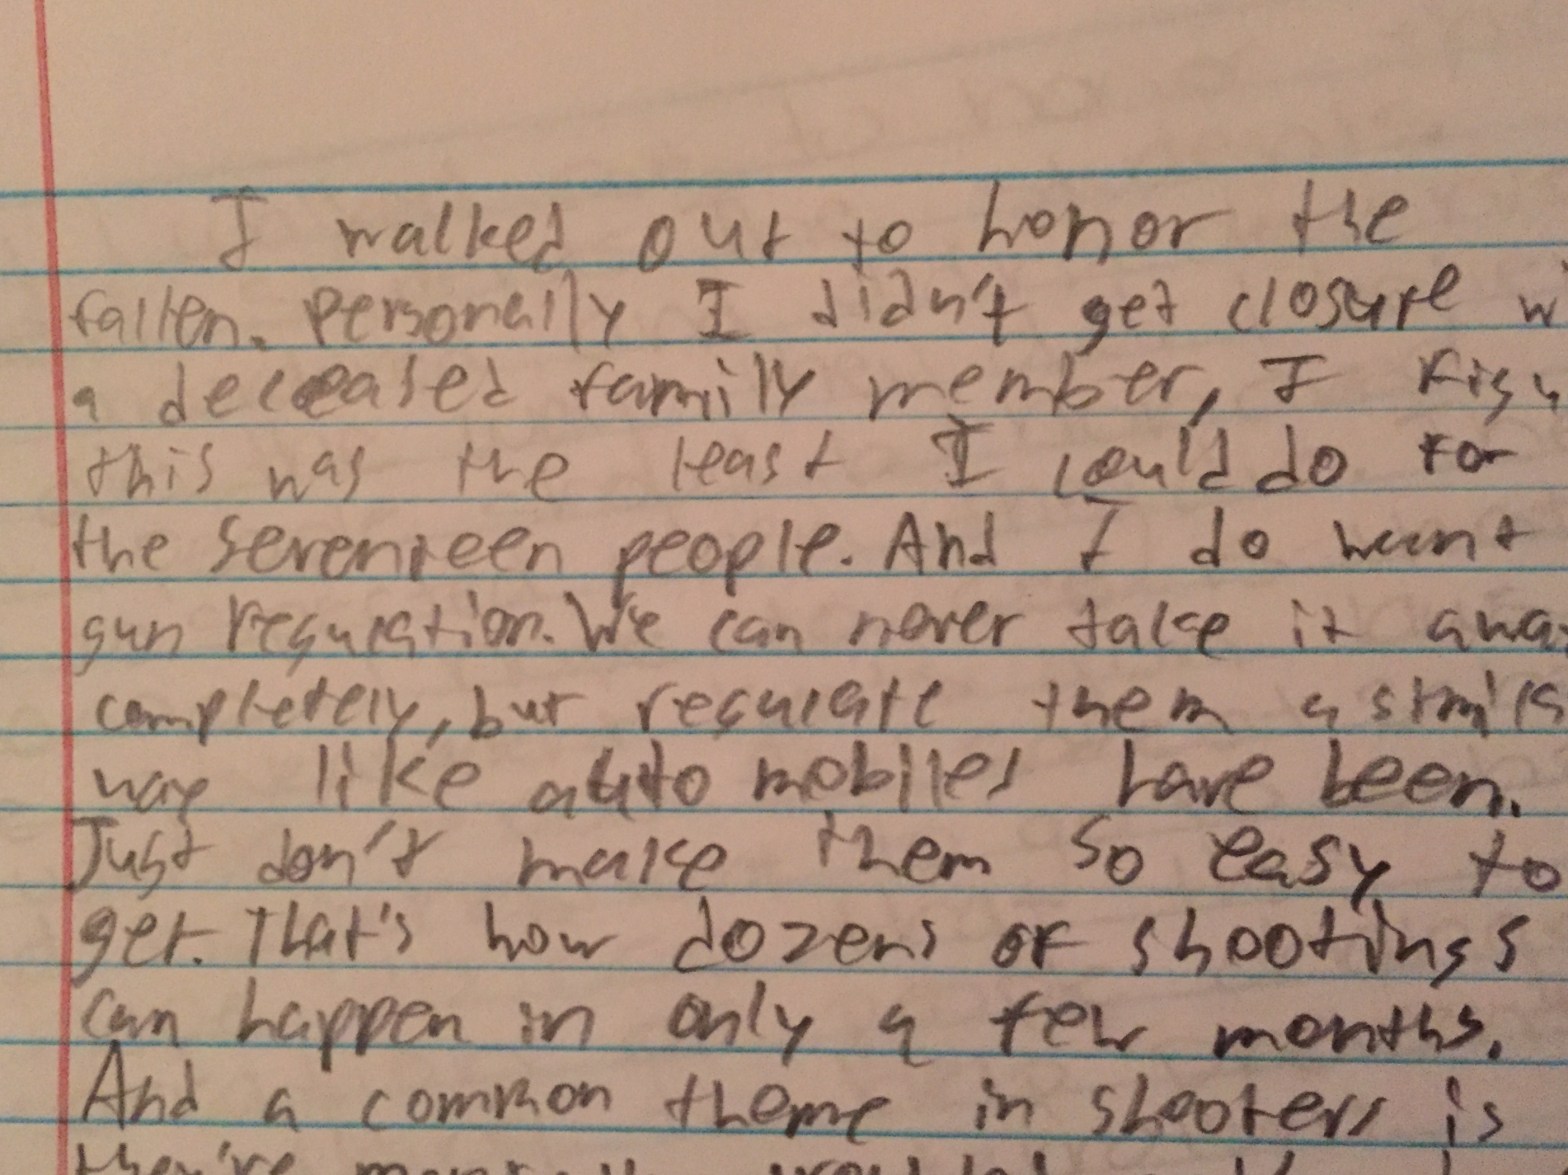 I walked out to honor the
fallen. Personally I didn't get closure
a deceased family member, I
this was the least I could do for
the seventeen people. And I do want
gun reguation. We can never take it
completely, but regulate them a
way like auto mobiles have been.
Just don't make them so easy to
get. That's how dozens of shootings
can happen in only a few months.
And a common theme in shooters is
they're